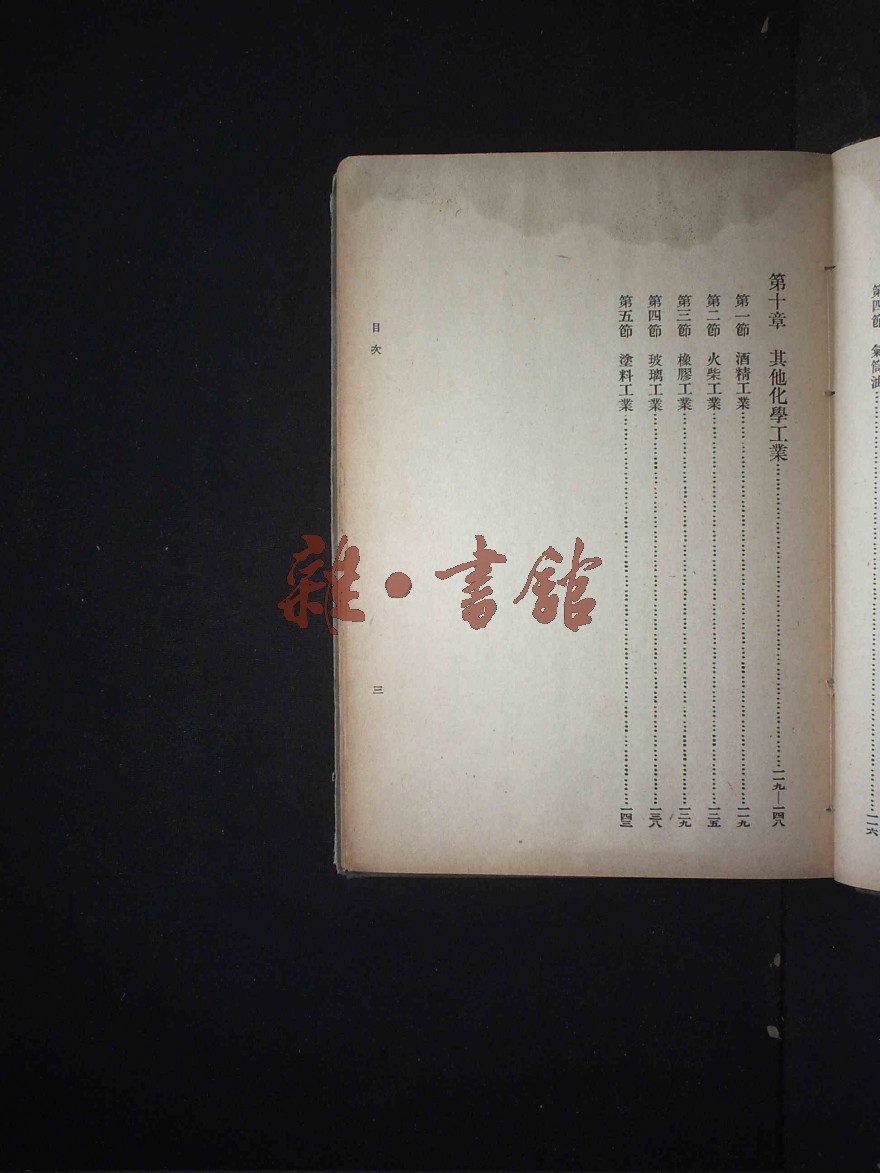 第四節　氣筒油……一一六
第十章　其他化學工業……一一九—一四八
第一節　酒精工業……一一九
第二節　火柴工業……一二五
第三節　橡膠工業……一二九
第四節　玻璃工業……一三八
第五節　塗料工業……一四三
目次
三
雜·書館